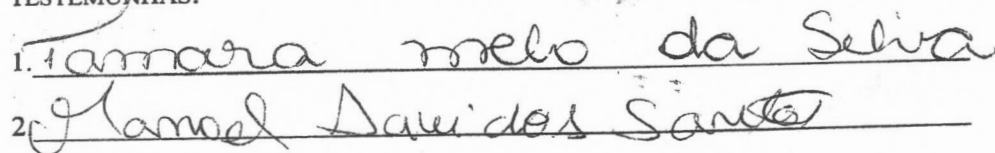 TESTEMUNHAS:
1. Tamara melo da Silva
2. Manoel Davi dos Santos